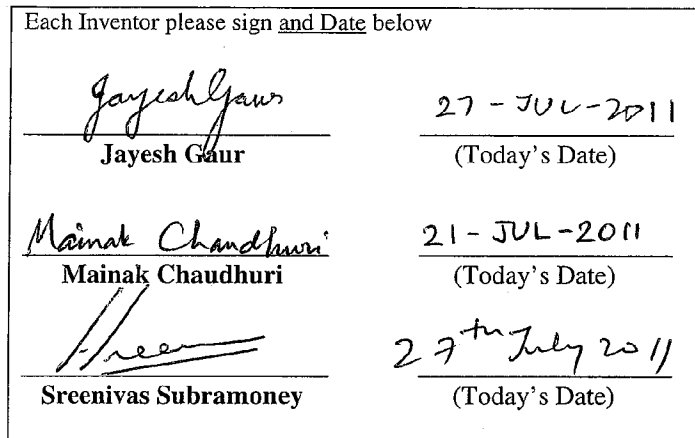 Each Inventor please sign and Date below
Jayesh Gaur 27-JUL-2011
Jayesh Gaur (Today's Date)
Mainak Chaudhuri 21-JUL-2011
Mainak Chaudhuri (Today's Date)
Sreen 27th July 2011
Sreenivas Subramoney (Today's Date)